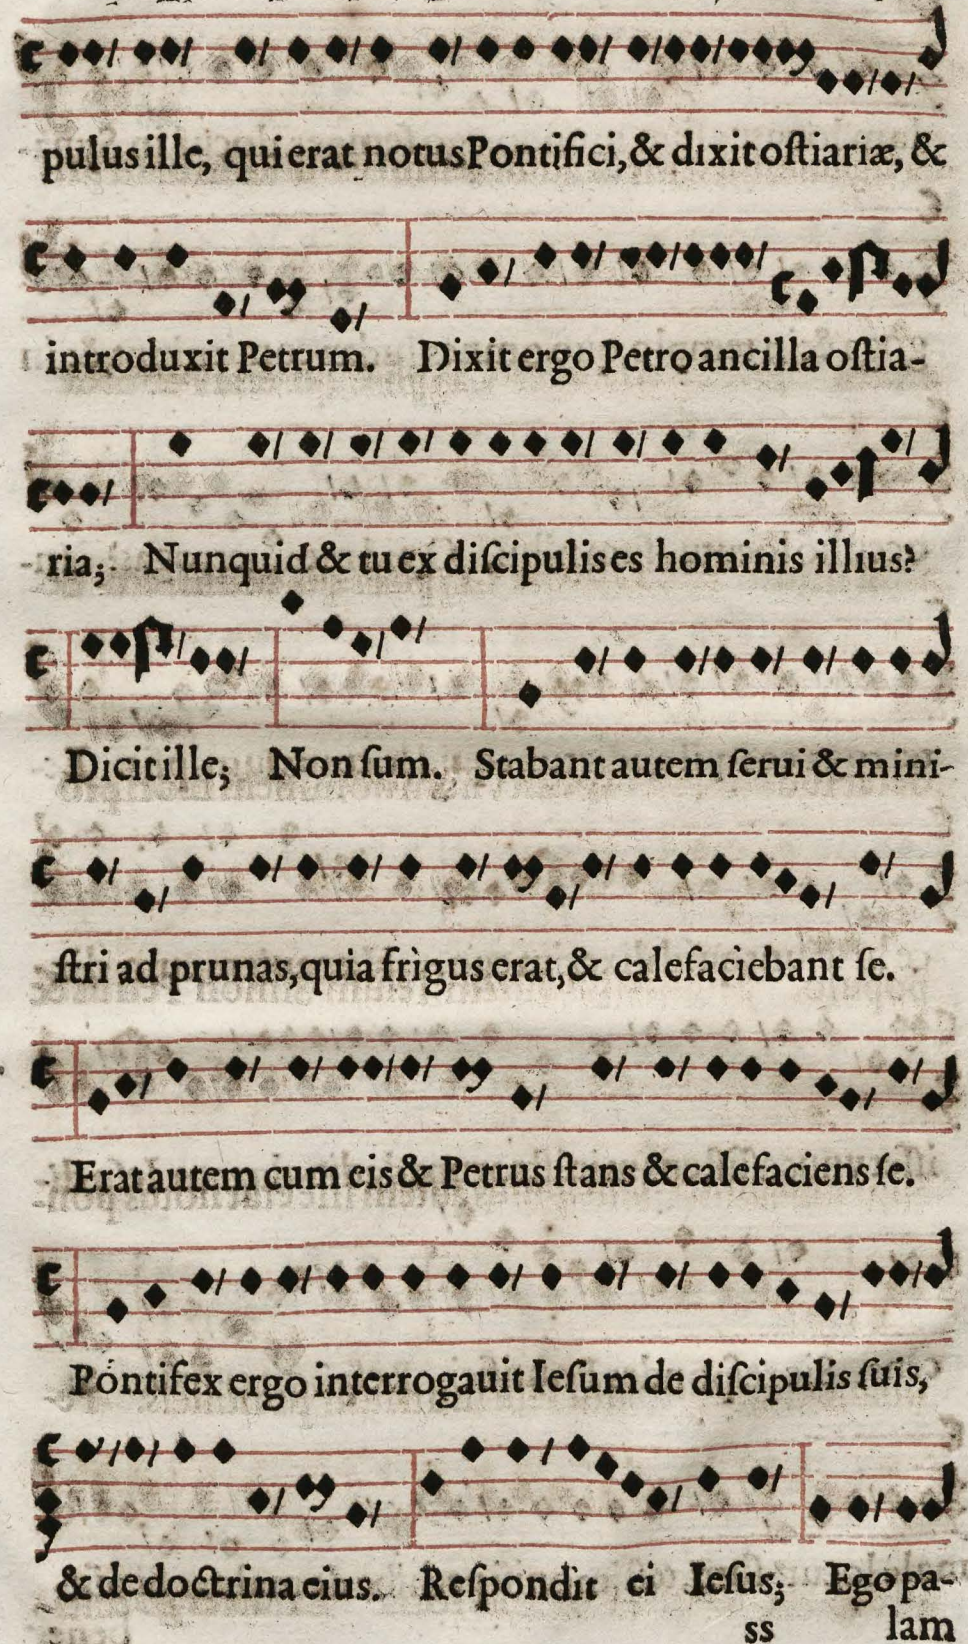 pulus ille, qui erat notus Pontifici, & dixit oſtiariæ, &
introduxit Petrum. Dixit ergo Petro ancilla oſtia-
ria; Nunquid & tu ex diſcipulis es hominis illius?
Dicit ille; Non ſum. Stabant autem ſerui & mini-
ſtri ad prunas, quia frìgus erat, & calefacìebant ſe.
Erat autem cum eis & Petrus ſtans & calefaciens ſe.
Póntifex ergo interrogauit Ieſum de diſcipulis ſuis,
& de doctrina eius. Reſpondìt ei Ieſus; Ego pa-
ss lam